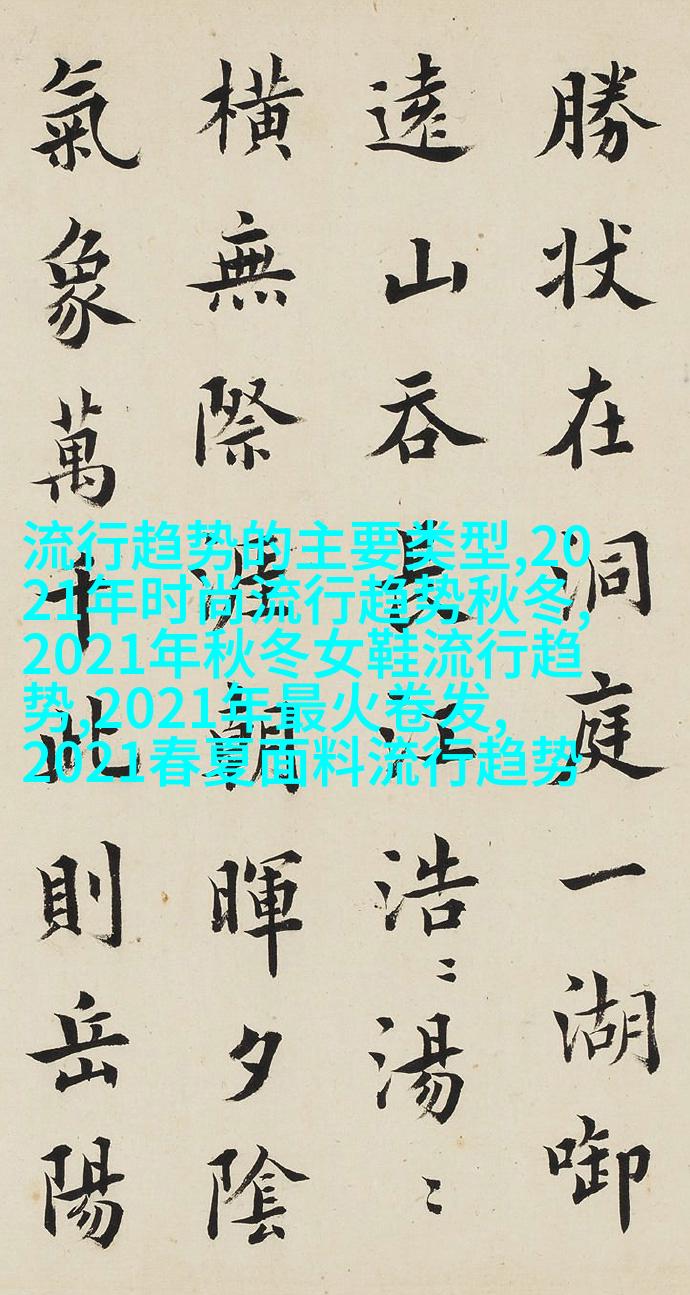 勝状在洞庭一湖啣
遠山吞長江浩〻湯〻
横無際涯朝暉夕陰
氣象萬千此則岳陽
流行趋势的主要类型,20
21年时尚流行趋势秋冬,
2021年秋冬女鞋流行趋
势,2021年最火卷发,
2021春夏面料流行趋势